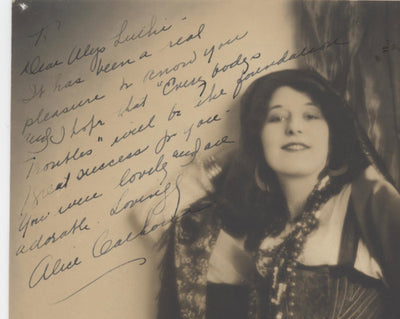 To
Dear Alys Luthi
It has been a real
pleasure to know you
and I hope that "Every bodys
Troubles" will be the foundation
great success for you.
You were lovely and are
adorable. Lovingly
Alice Calhoun